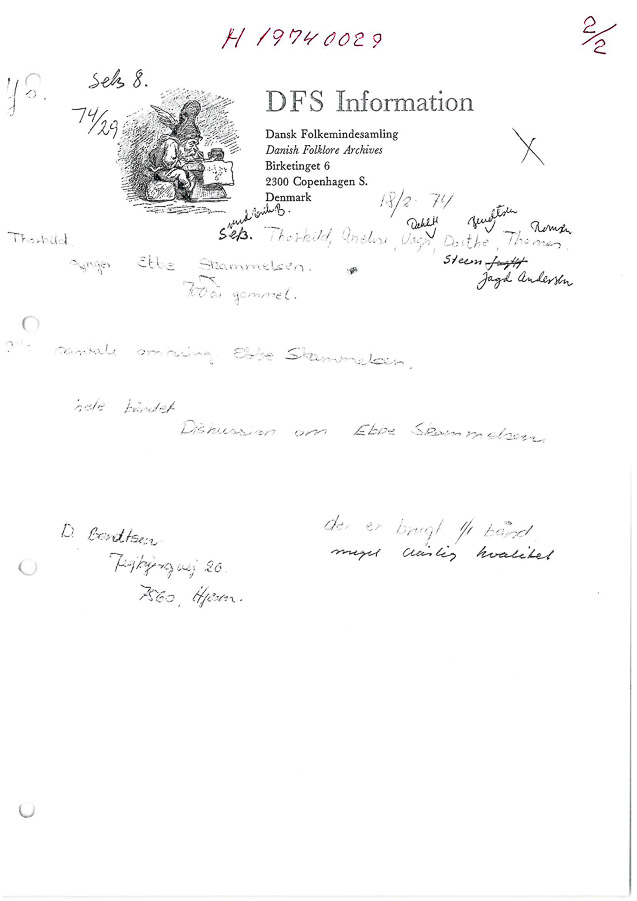 H 19740029
2/2
seks 8.
74/29
DFS Information
Dansk Folkemindesamling
Danish Folklore Archives
Birketinget 6
2300 Copenhagen S.
Denmark
18/2 74
Seks. Thorkild, Anders, Vagn, Dorthe, Thomas
Steen
Jagd Andersen
Thorkild
synger Ebbe Skammelsen.
700 år gammel.
samtale omkring Ebbe Skammelsen.
hele båndet
Diskussion om Ebbe Skammelsen
D. Bendtsen
20
7560, Hjerm.
der er brugt 1/1 bånd
meget dårlig kvalitet